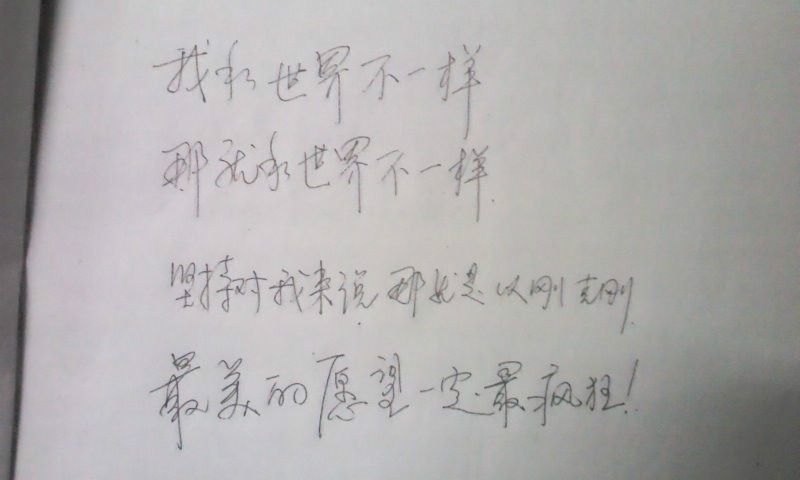 我和世界不一样
那就和世界不一样
坚持对我来说 那就是以刚克刚
最美的愿望一定最疯狂!